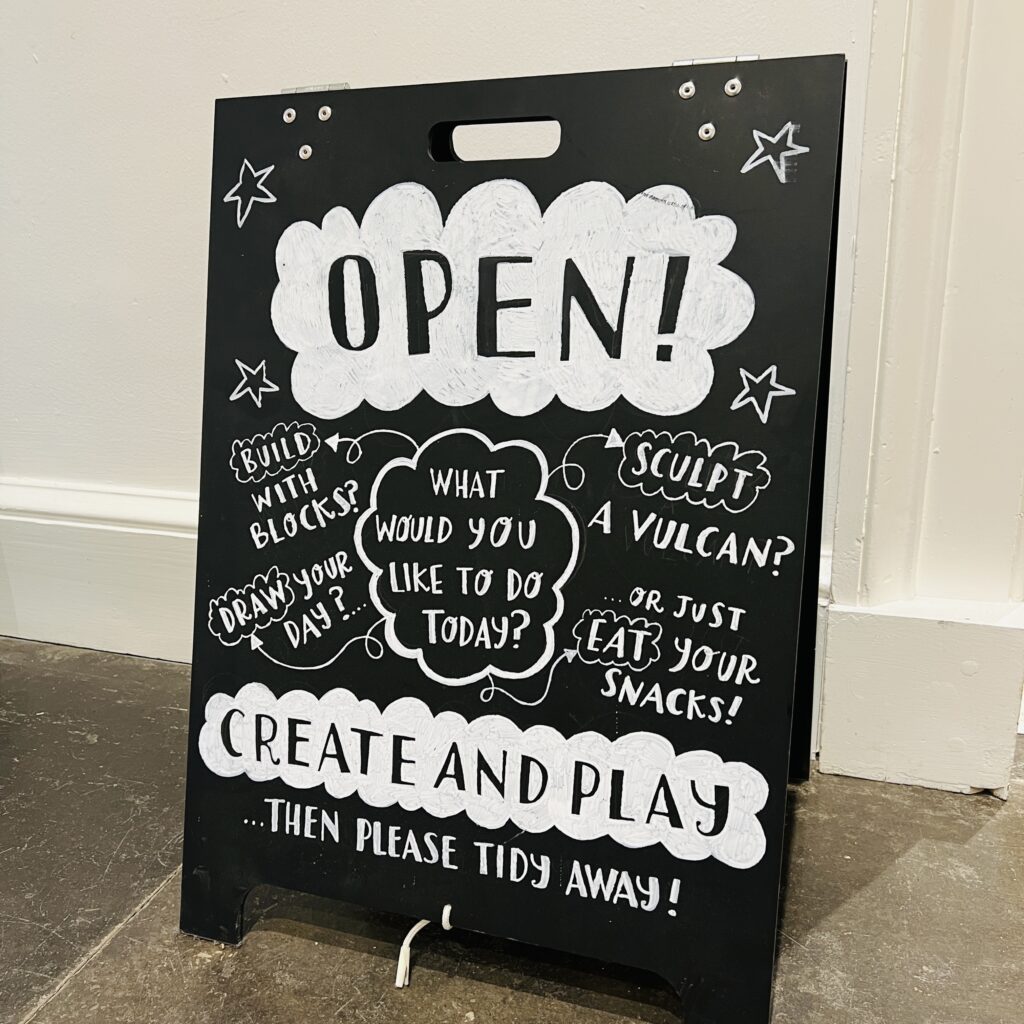 OPEN!
BUILD
WITH
BLOCKS?
DRAW YOUR
DAY?...
WHAT
WOULD YOU
LIKE TO DO
TODAY?
SCULPT
A VULCAN?
...OR JUST
EAT YOUR
SNACKS!
CREATE AND PLAY
...THEN PLEASE TIDY AWAY!